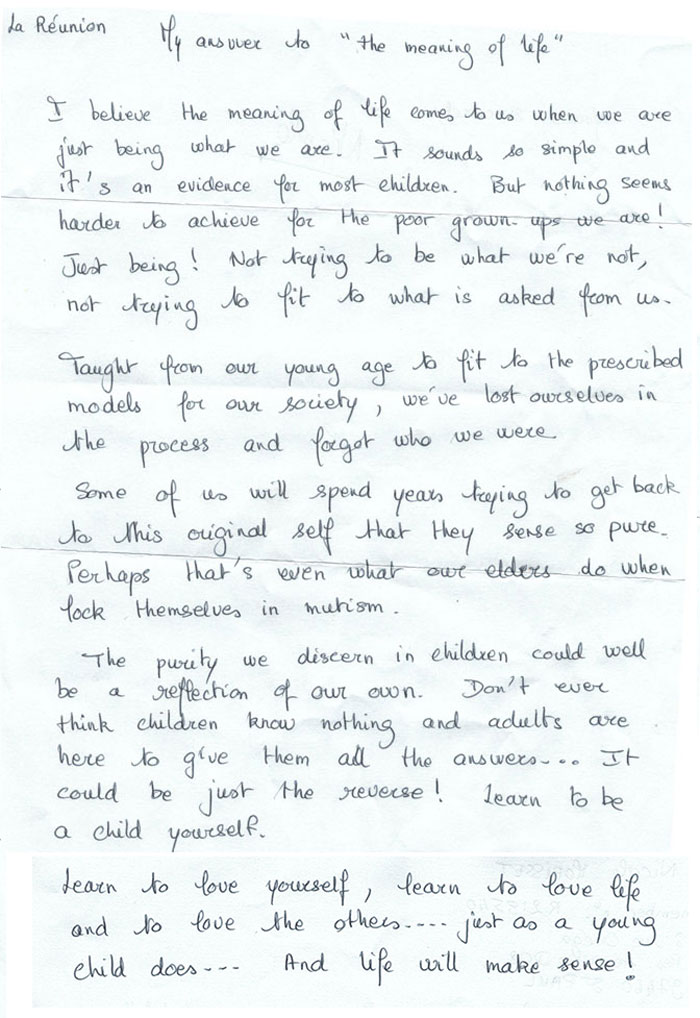 La Réunion
My answer to "the meaning of life"
I believe the meaning of life comes to us when we are
just being what we are. It sounds so simple and
it's an evidence for most children. But nothing seems
harder to achieve for the poor grown-ups we are!
Just being! Not trying to be what we're not,
not trying to fit to what is asked from us.
Taught from our young age to fit to the prescribed
models for our society, we've lost ourselves in
the process and forgot who we were.
Some of us will spend years trying to get back
to this original self that they sense so pure.
Perhaps that's even what our elders do when
lock themselves in mutism.
The purity we discern in children could well
be a reflection of our own. Don't ever
think children know nothing and adults are
here to give them all the answers.... It
could be just the reverse! Learn to be
a child yourself.
Learn to love yourself, learn to love life
and to love the others.... just as a young
child does--- And life will make sense!